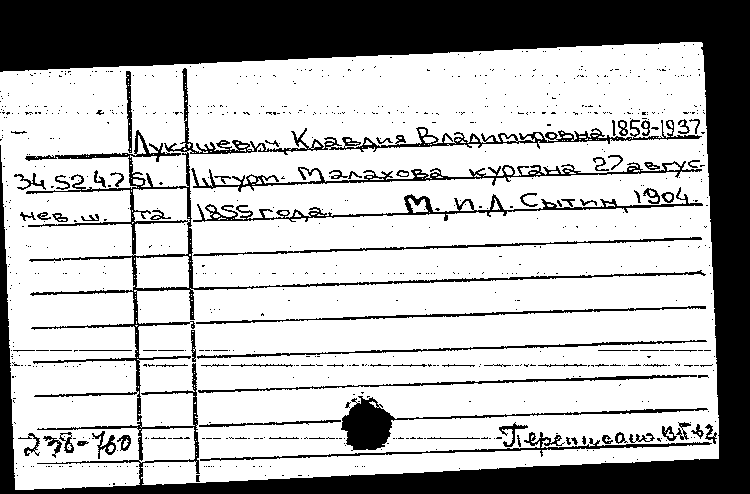 Лукашевич, Клавдия Владимировна, 1859-1937
34.52.4.251. Штурм Малахова кургана 27 авгус
нев.ш. та 1855 года. М., И.Д. Сытин, 1904.
238-760 Переписано.